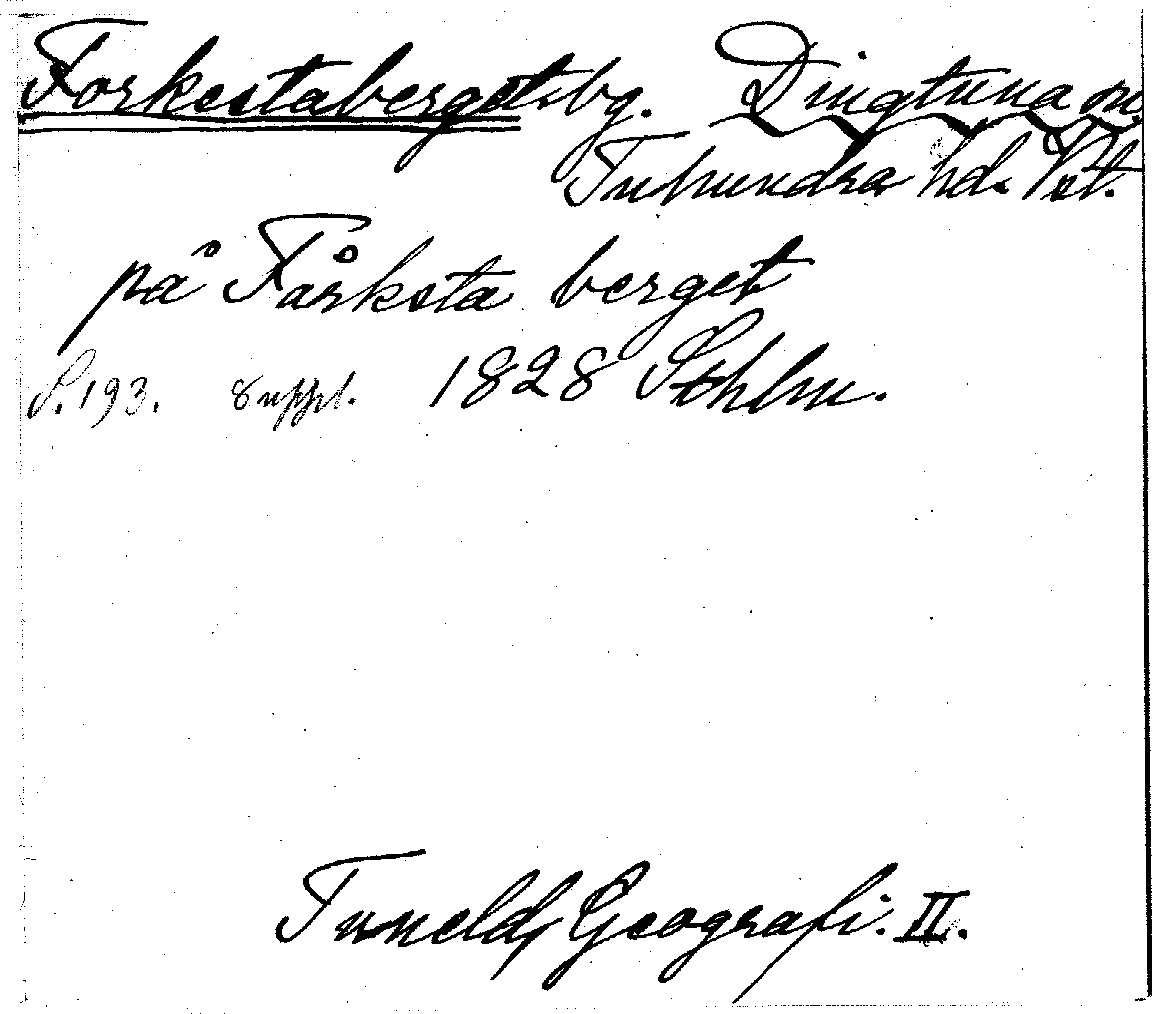 Forkestaberget bg. Dingtuna sn.
Tuhundra hd. Vst.
på Fårksta berget
S. 193. Suppl. 1828 Sthlm.
Tuneld, Geografi. II.